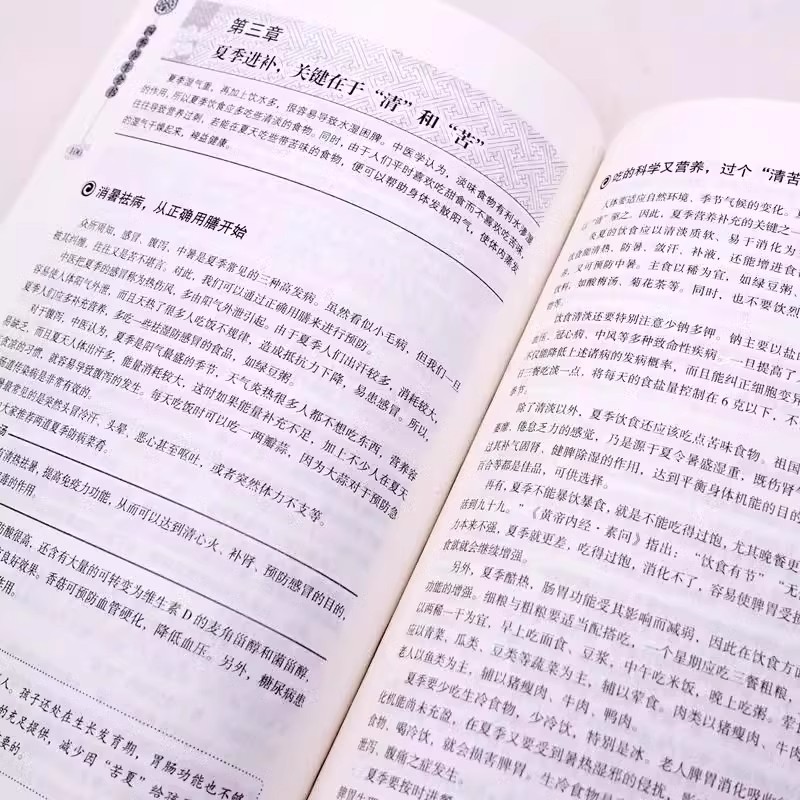 四季养生全书
第三章
夏季进补，关键在于“清”和“苦”
夏季湿气重，再加上饮水多，很容易导致水湿困脾。中医学认为，淡味食物有利水渗湿
的作用，所以夏季饮食应多吃些清淡的食物。同时，由于人们平时喜欢吃甜食而不喜欢吃苦味，
往往导致营养过剩，若能在夏天吃些带苦味的食物，便可以帮助身体发散阳气，使体内蒸发
的湿气干燥起来，裨益健康。
消暑祛病，从正确用膳开始
众所周知，感冒、腹泻、中暑是夏季常见的三种高发病。虽然看似小毛病，但我们一旦
被其纠缠，往往又是苦不堪言。对此，我们可以通过正确用膳来进行预防。
中医把夏季的感冒称为热伤风，多由阳气外泄引起。由于夏季人们出汗较多，消耗较大，
容易使人体阳气外泄，而且天热了很多人吃饭不规律，造成抵抗力下降，易患感冒。所以，
夏季人们应多补充营养，多吃一些祛湿防感冒的食品，如绿豆粥。
对于腹泻，中医认为，夏季是阳气最盛的季节，天气炎热很多人都不想吃东西，营养容
易缺乏，而且夏天人体出汗多，能量消耗较大，这时如果能量补充不足，加上不少人在夏天
贪凉的习惯，就容易导致腹泻的发生。每天吃饭时可以吃一两瓣蒜，因为大蒜对于预防急
肠道传染病是非常有效的。
暑最常见的是突然头冒冷汗、头晕、恶心甚至呕吐，或者突然体力不支等。
大家推荐两道夏季防病菜肴。
汤
有清热祛暑、提高免疫力功能，从而可以达到清心火、补肾、预防感冒的目的，
毒的作用。
肪酸很高，还含有大量的可转变为维生素 D 的麦角甾醇和菌甾醇，
有良好效果。香菇可预防血管硬化，降低血压。另外，糖尿病患
作用。
人、孩子还处在生长发育期，胃肠功能也不够
的充足提供，减少因“苦夏”给孩
要的。
吃的科学又营养，过个“清苦
人体要适应自然环境、季节气候的变化。
以“清”驱之。因此，夏季营养补充的关键之一
炎夏的饮食应以清淡质软、易于消化为
饮食能清热、防暑、敛汗、补液，还能增进食
杀，又可预防中暑。主食以稀为宜，如绿豆粥、
饮料，如酸梅汤、菊花茶等。同时，也不要饮烈
等。
饮食清淡还要特别注意少钠多钾。钠主要以盐
血压、冠心病、中风等多种致命性疾病。一旦提高了
不仅能降低上述诸病的发病概率，而且能纠正细胞变异
日三餐吃淡一点，将每天的食盐量控制在 6 克以下，不
季节。
除了清淡以外，夏季饮食还应该吃点苦味食物。祖国
萎靡、倦怠乏力的感觉，乃是源于夏令暑盛湿重，既伤肾气
过其补气固肾、健脾除湿的作用，达到平衡身体机能的目的
百合等都是佳品，可供选择。
再有，夏季不能暴饮暴食，就是不能吃得过饱，尤其晚餐更
活到九十九。”《黄帝内经·素问》指出：“饮食有节”“无
力本来不强，夏季就更差，吃得过饱，消化不了，容易使脾胃受损
食欲就会继续增强。
另外，夏季酷热，肠胃功能受其影响而减弱，因此在饮食方
功能的增强。细粮与粗粮要适当配搭吃，一个星期应吃三餐粗粮，
以两稀一干为宜，早上吃面食、豆浆，中午吃米饭，晚上吃粥。荤
应以青菜、瓜类、豆类等蔬菜为主，辅以荤食。肉类以猪瘦肉、牛肉
老人以鱼类为主，辅以猪瘦肉、牛肉、鸭肉。
夏季要少吃生冷食物，少冷饮，特别是冰。老人脾胃消化吸收
化机能尚未充盈，在夏季又要受到暑热湿邪的侵扰，
食物、喝冷饮，就会损害脾胃。生冷食物是
泄泻、腹痛之症发生。
夏季要按时进餐